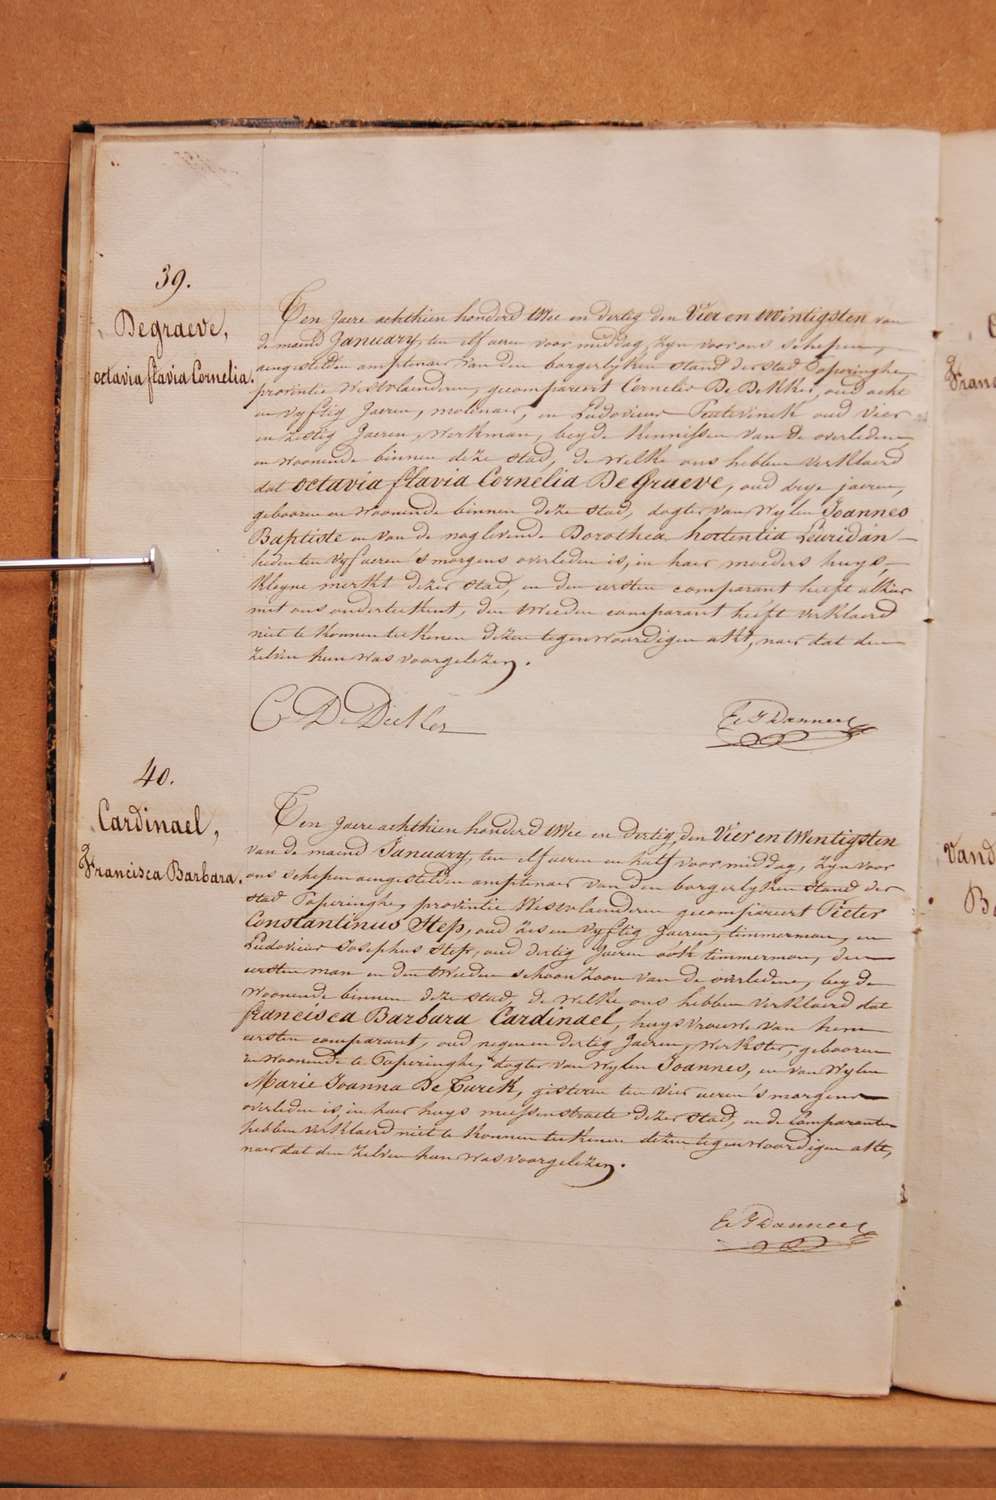 39.
Degraeve,
octavia flavia Cornelia.
Ten jaere achthien honderd twee en dertig den Vier en twintigsten van
de maend January, ten elf ueren voor middag, zyn voor ons schepenen,
aengestelden amptenaer van den borgerlyken stand der stad Poperinghe,
provintie Westvlaenderen, gecompareert Cornelis De Dekker, oud acht
en vyftig Jaeren, molenaer, en Ludovicus oud vier
en zestig Jaeren, werkman, beyde kennissen van de overledene,
en woonende binnen deze stad, de welke ons hebben verklaerd
dat octavia flavia Cornelia DeGraeve, oud drye jaeren,
gebooren en woonende binnen deze stad, dogter van wylen Joannes
Baptiste en van de noglevende Dorothea hortentia Leuridan
heden ten vyf ueren 's morgens overleden is, in haer moeders huys,
kleyne merkt dezer stad, en den eersten comparant heeft alhier
met ons onderteekent, den tweeden comparant heeft verklaerd
niet te konnen teekenen dezen tegenwoordigen akt, naer dat den
zelven hun was voorgelezen.
C De Dekker
40.
Cardinael,
Francisca Barbara.
Ten Jaere achthien honderd twee en dertig, den Vier en twintigsten
van de maend January, ten elf ueren en half voor middag, zyn voor
ons schepen aengestelden amptenaer van den borgerlyken stand der
stad Poperinghe, provintie Westvlaenderen gecompareert Pieter
Constantinus Step, oud en vyftig Jaeren, timmerman, en
Ludovicus Josephus Step, oud dertig Jaeren ook timmerman, den
eersten man en den tweeden schoonzoon van de overledene, beyde
woonende binnen deze stad, de welke ons hebben verklaerd dat
francisca Barbara Cardinael, huysvrouwe van hem
eersten comparant, oud negen en dertig Jaeren, werkster, gebooren
en woonende te Poperinghe, dogter van wylen Joannes, en van wylen
Marie Joanna De Turck, gisteren ten vier ueren 's morgens
overleden is, in haer huys messenstraete dezer stad, en de Comparanten
hebben verklaerd niet te konnen teekenen dezen tegenwoordigen akte,
naer dat den zelven hun was voorgelezen.